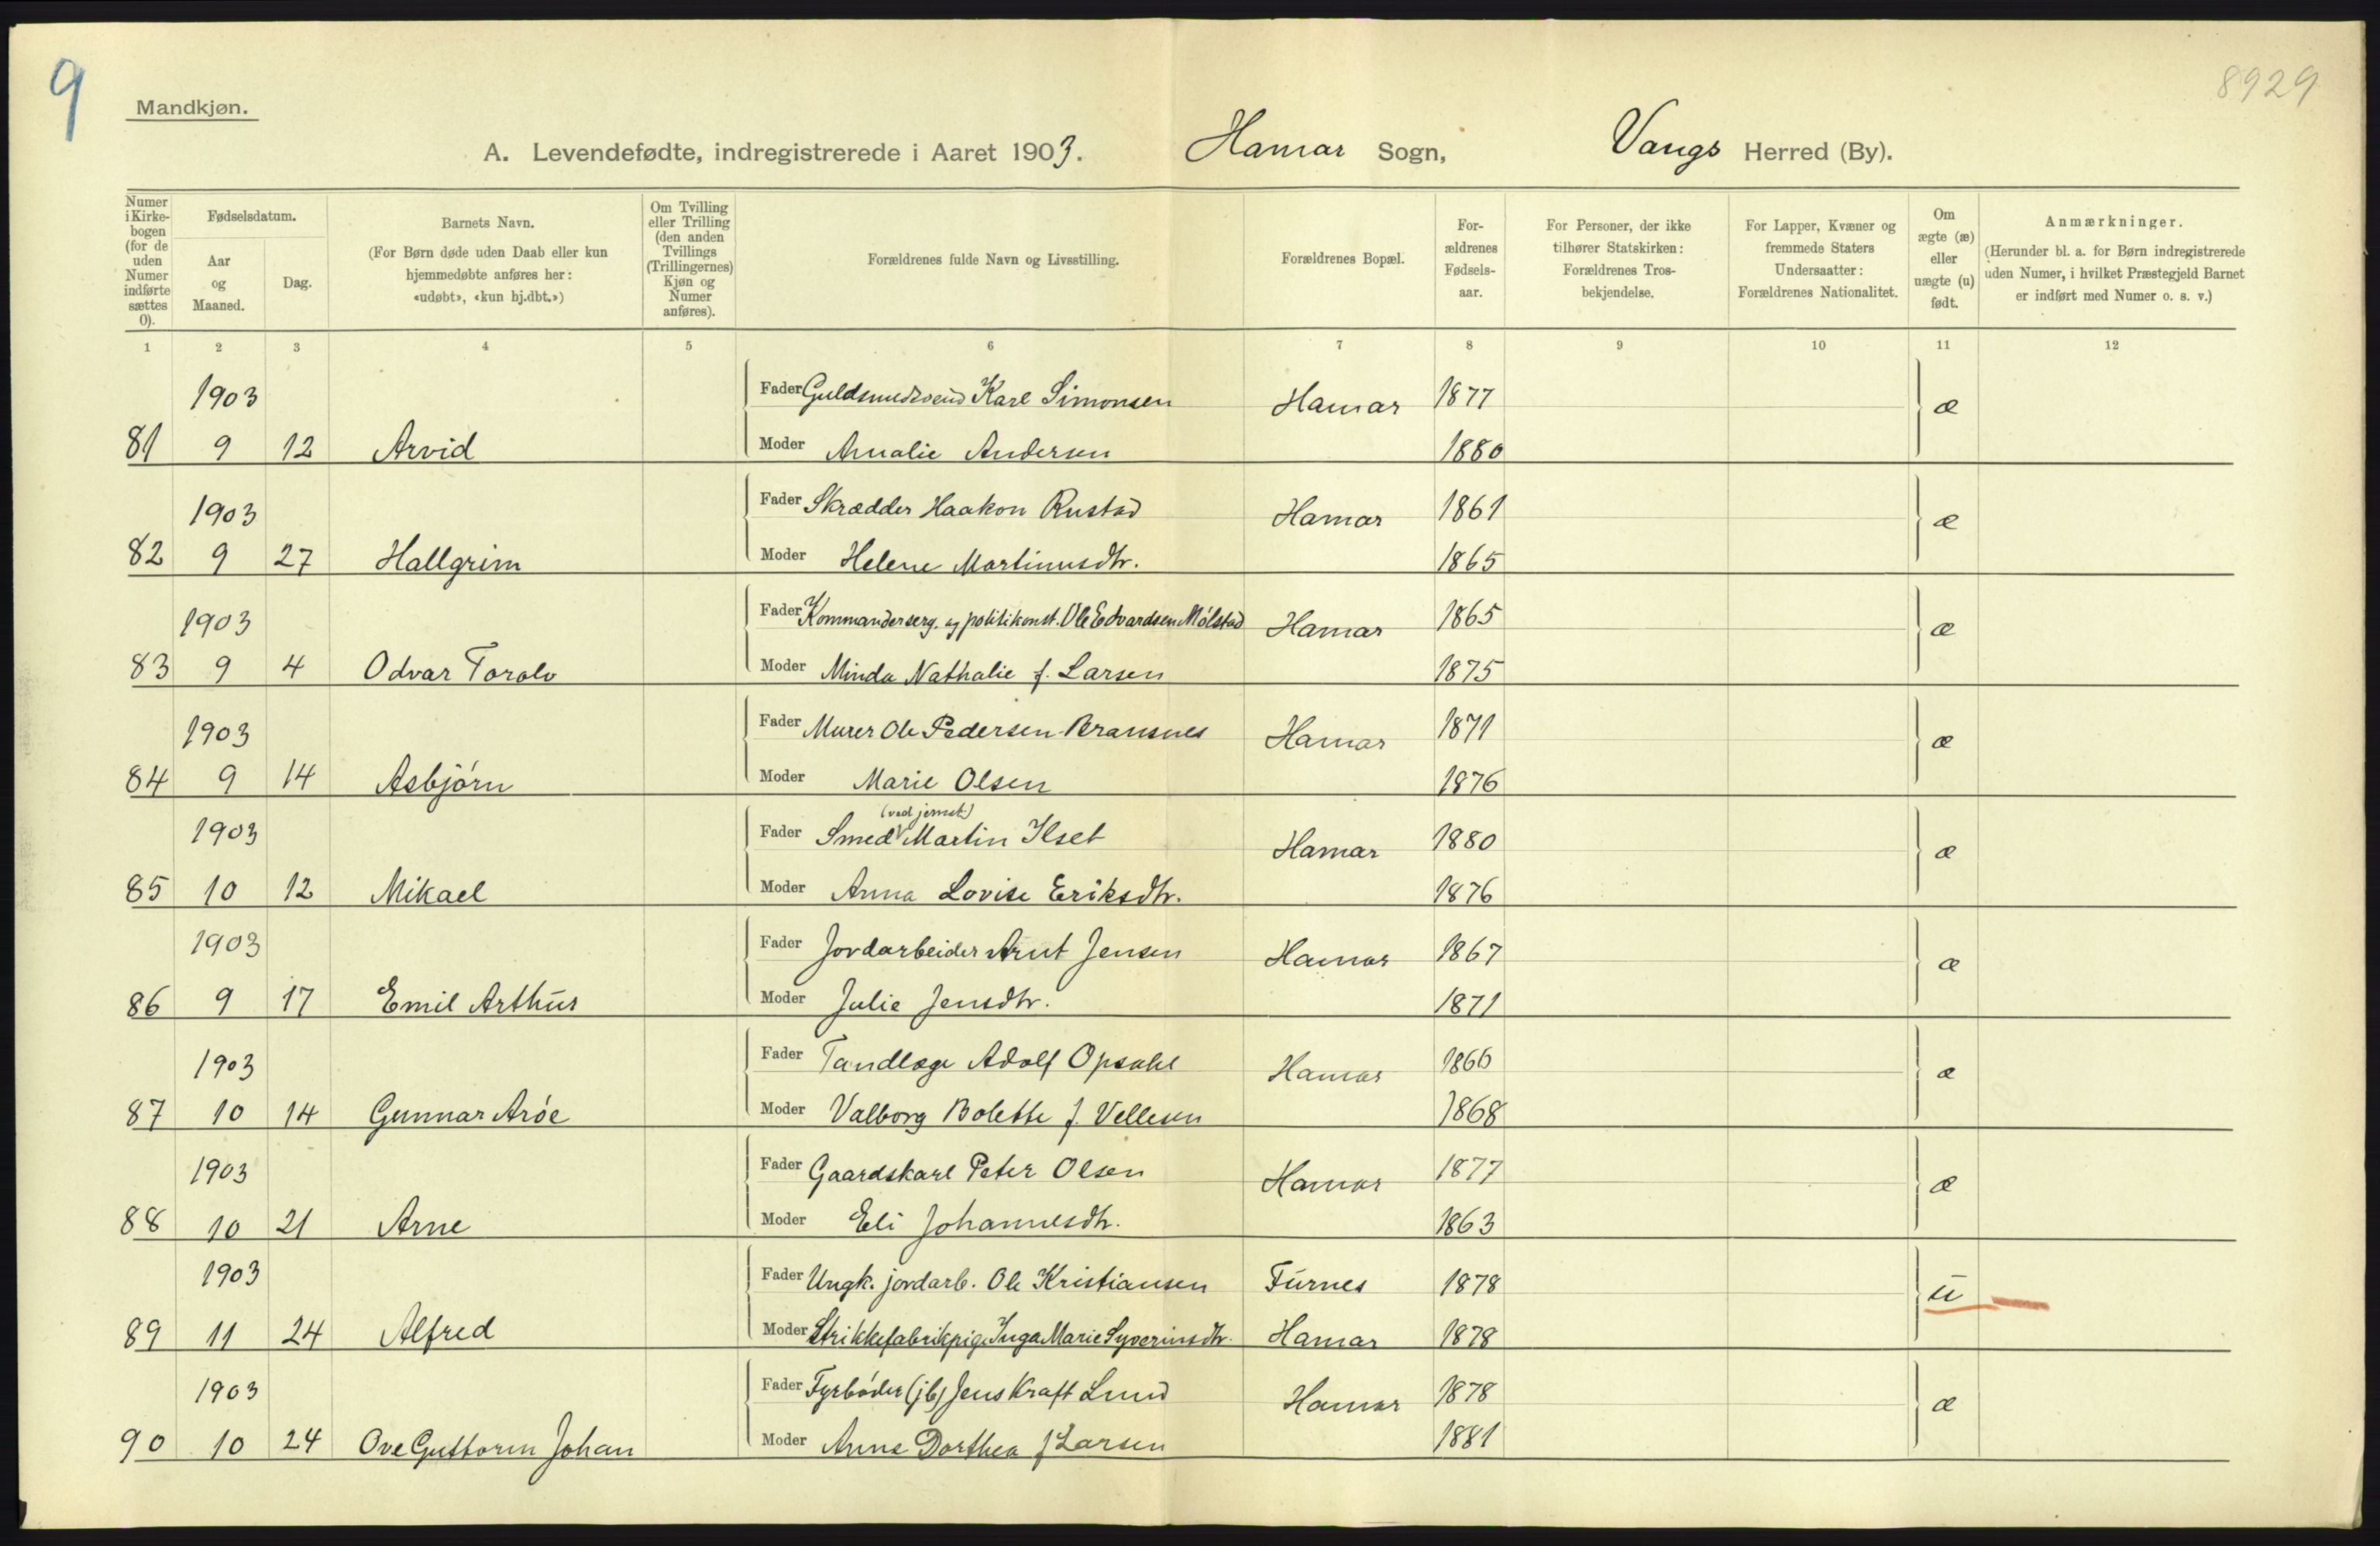 9
8929
Mandkjøn.
A. Levendefødte, indregistrerede i Aaret 1903. Hamar Sogn, Vangs Herred (By).
Numer i Kirkebogen (for de uden Numer indførte sættes 0).
Fødselsdatum.
Aar og Maaned.
Dag.
Barnets Navn.
(For Børn døde uden Daab eller kun hjemmedøbte anføres her: «udøbt», «kun hj.dbt.»)
Om Tvilling eller Trilling (den anden Tvillings (Trillingernes) Kjøn og Numer anføres).
Forældrenes fulde Navn og Livsstilling.
Forældrenes Bopæl.
Forældrenes Fødselsaar.
For Personer, der ikke tilhører Statskirken: Forældrenes Trosbekjendelse.
For Lapper, Kvæner og fremmede Staters Undersaatter: Forældrenes Nationalitet.
Om ægte (æ) eller uægte (u) født.
Anmærkninger.
(Herunder bl. a. for Børn indregistrerede uden Numer, i hvilket Præstegjeld Barnet er indført med Numer o. s. v.)
1 2 3 4 5 6 7 8 9 10 11 12
1903 Fader Guldsmedsvend Karl Simonsen Hamar 1877 æ
81 9 12 Arvid Moder Amalie Andersen 1880
1903 Fader Skrædder Haakon Rustad Hamar 1861 æ
82 9 27 Hallgrim Moder Helene Martinusdtr. 1865
1903 Fader Kommanderserg. og politikonst. Ole Edvardsen Mølstad Hamar 1865 æ
83 9 4 Odvar Torolv Moder Minda Nathalie f. Larsen 1875
1903 Fader Murer Ole Pedersen Bransnes Hamar 1871 æ
84 9 14 Asbjørn Moder Marie Olsen 1876
(ved jernst.)
1903 Fader Smed Martin Ilset Hamar 1880 æ
85 10 12 Mikael Moder Anna Lovise Eriksdtr. 1876
1903 Fader Jordarbeider Arnt Jensen Hamar 1867 æ
86 9 17 Emil Arthur Moder Julie Jensdtr. 1871
1903 Fader Tandlæge Adolf Opsahl Hamar 1866 æ
87 10 14 Gunnar Arøe Moder Valborg Bolette f. Vellesen 1868
1903 Fader Gaardskarl Peter Olsen Hamar 1877 æ
88 10 21 Arne Moder Eli Johannesdtr. 1863
1903 Fader Ungk. jordarb. Ole Kristiansen Furnes 1878 u
89 11 24 Alfred Moder Strikkefabrikpige Inga Marie Syverinsdtr. Hamar 1878
1903 Fader Fyrbøder (jb) Jens Kraft Lund Hamar 1878 æ
90 10 24 Ove Guttorm Johan Moder Anna Dorthea f Larsen 1881